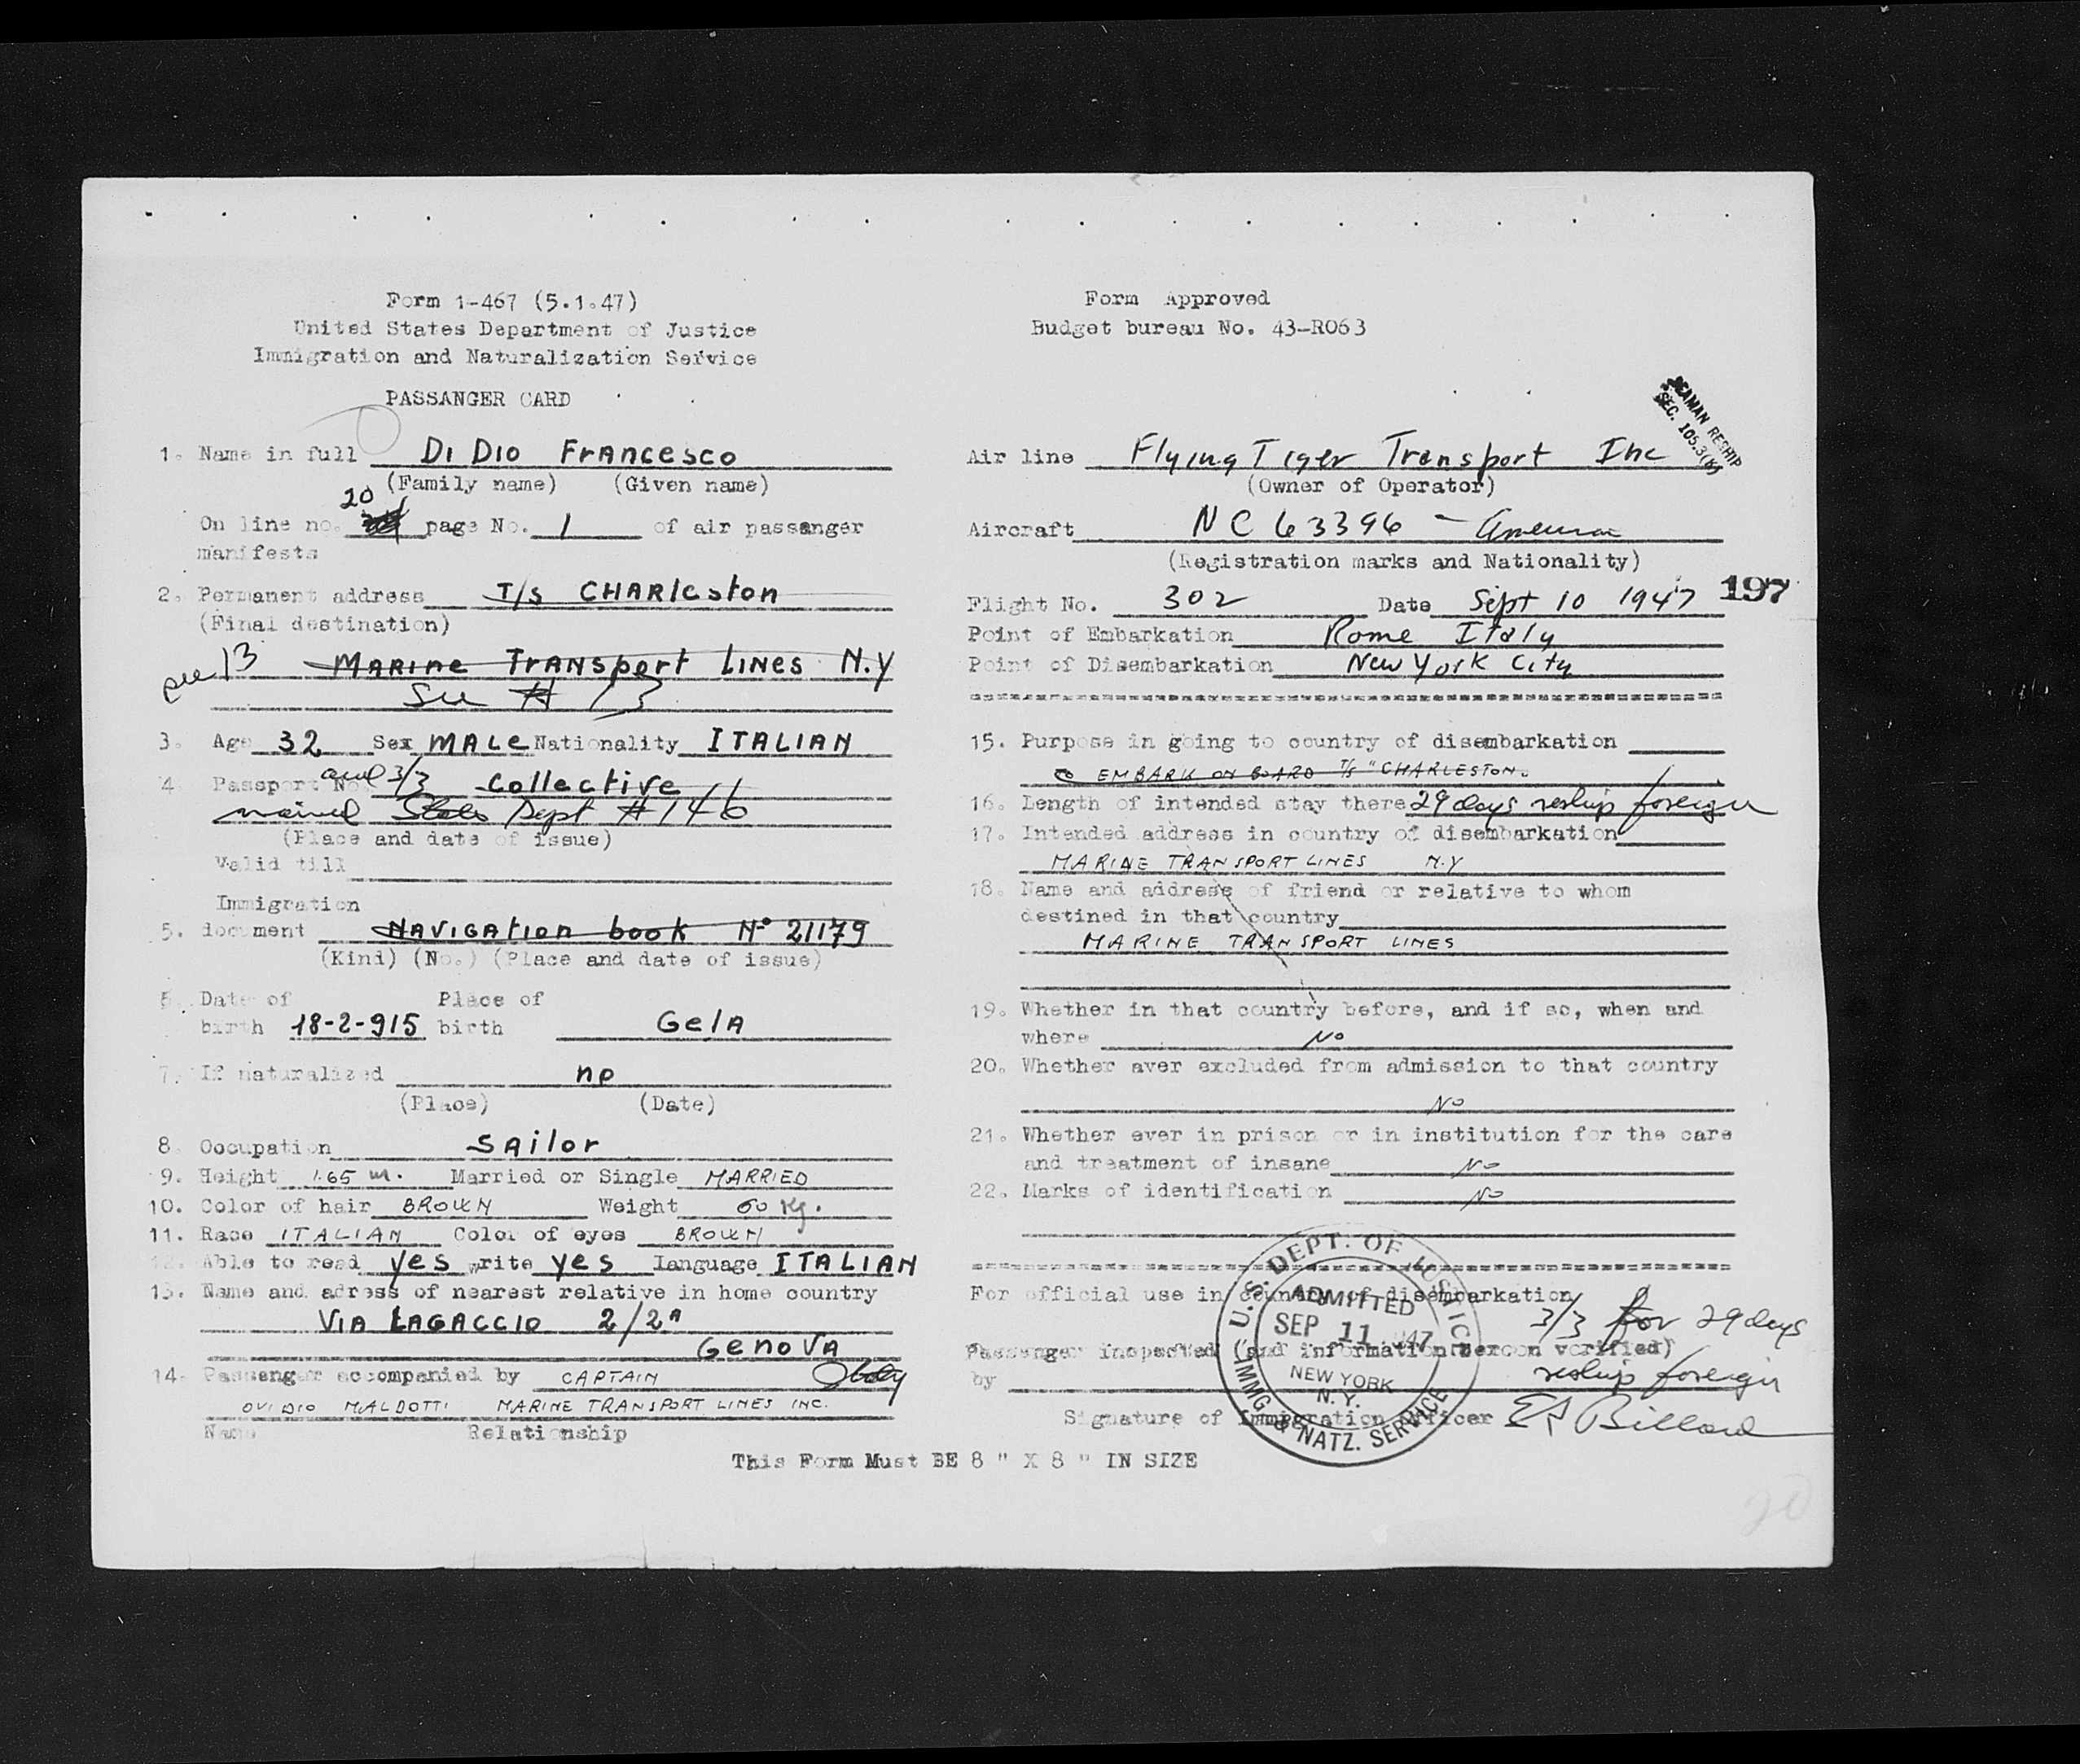 Form 1-467 (5.1.47)
United States Department of Justice
Immigration and Naturalization Service
PASSANGER CARD
Form Approved
Budget bureau No. 43-R063
SEAMAN RESHIP
SEC. 105.3(K)
1. Name in full Di Dio Francesco
(Family name) (Given name)
20
On line no. page No. 1 of air passanger
manifests
2. Permanent address T/s CHARleston
(Final destination)
see 13 MARINE TRANSport LINES N.Y
See # 13
3. Age 32 Sex MALE Nationality ITALIAN
4. Passport No. 3/3 Collective
waived State Dept # 146
(Place and date of issue)
Valid till
Immigration
5. document NAVIGATION book N° 21179
(Kind) (No.) (Place and date of issue)
6. Date of Place of
birth 18-2-915 birth GelA
7. If naturalized no
(Place) (Date)
8. Occupation SAilor
9. Height 1.65 m. Married or Single MARRIED
10. Color of hair BROWN Weight 60 Kg.
11. Race ITALIAN Color of eyes BROWN
12. Able to read yes write yes language ITALIAN
13. Name and adress of nearest relative in home country
VIA LAGACCIO 2/2A
GENOVA
Italy
14. Passenger accompanied by CAPTAIN
OVIDIO MALDOTTI MARINE TRANSPORT LINES INC.
Name Relationship
Air line Flying Tiger Transport Inc
(Owner of Operator)
Aircraft NC 63396 - American
(Registration marks and Nationality)
Flight No. 302 Date Sept 10 1947 197
Point of Embarkation Rome Italy
Point of Disembarkation New York City
15. Purpose in going to country of disembarkation
EMBARK ON BOARD T/S "CHARLESTON.
16. Length of intended stay there 29 days reship foreign
17. Intended address in country of disembarkation
MARINE TRANSPORT LINES N.Y
18. Name and address of friend or relative to whom
destined in that country
MARINE TRANSPORT LINES
19. Whether in that country before, and if so, when and
where No
20. Whether aver excluded from admission to that country
No
21. Whether ever in prison or in institution for the care
and treatment of insane No
22. Marks of identification No
For official use in country of disembarkation
3/3 for 29 days
Passenger inspected (and information hereon verified)
by reship foreign
Signature of Immigration Officer ER Billard
U.S. DEPT. OF JUSTICE
ADMITTED
SEP 11 1947
NEW YORK
N.Y.
IMMG. & NATZ. SERVICE
This Form Must BE 8 " X 8 " IN SIZE
20